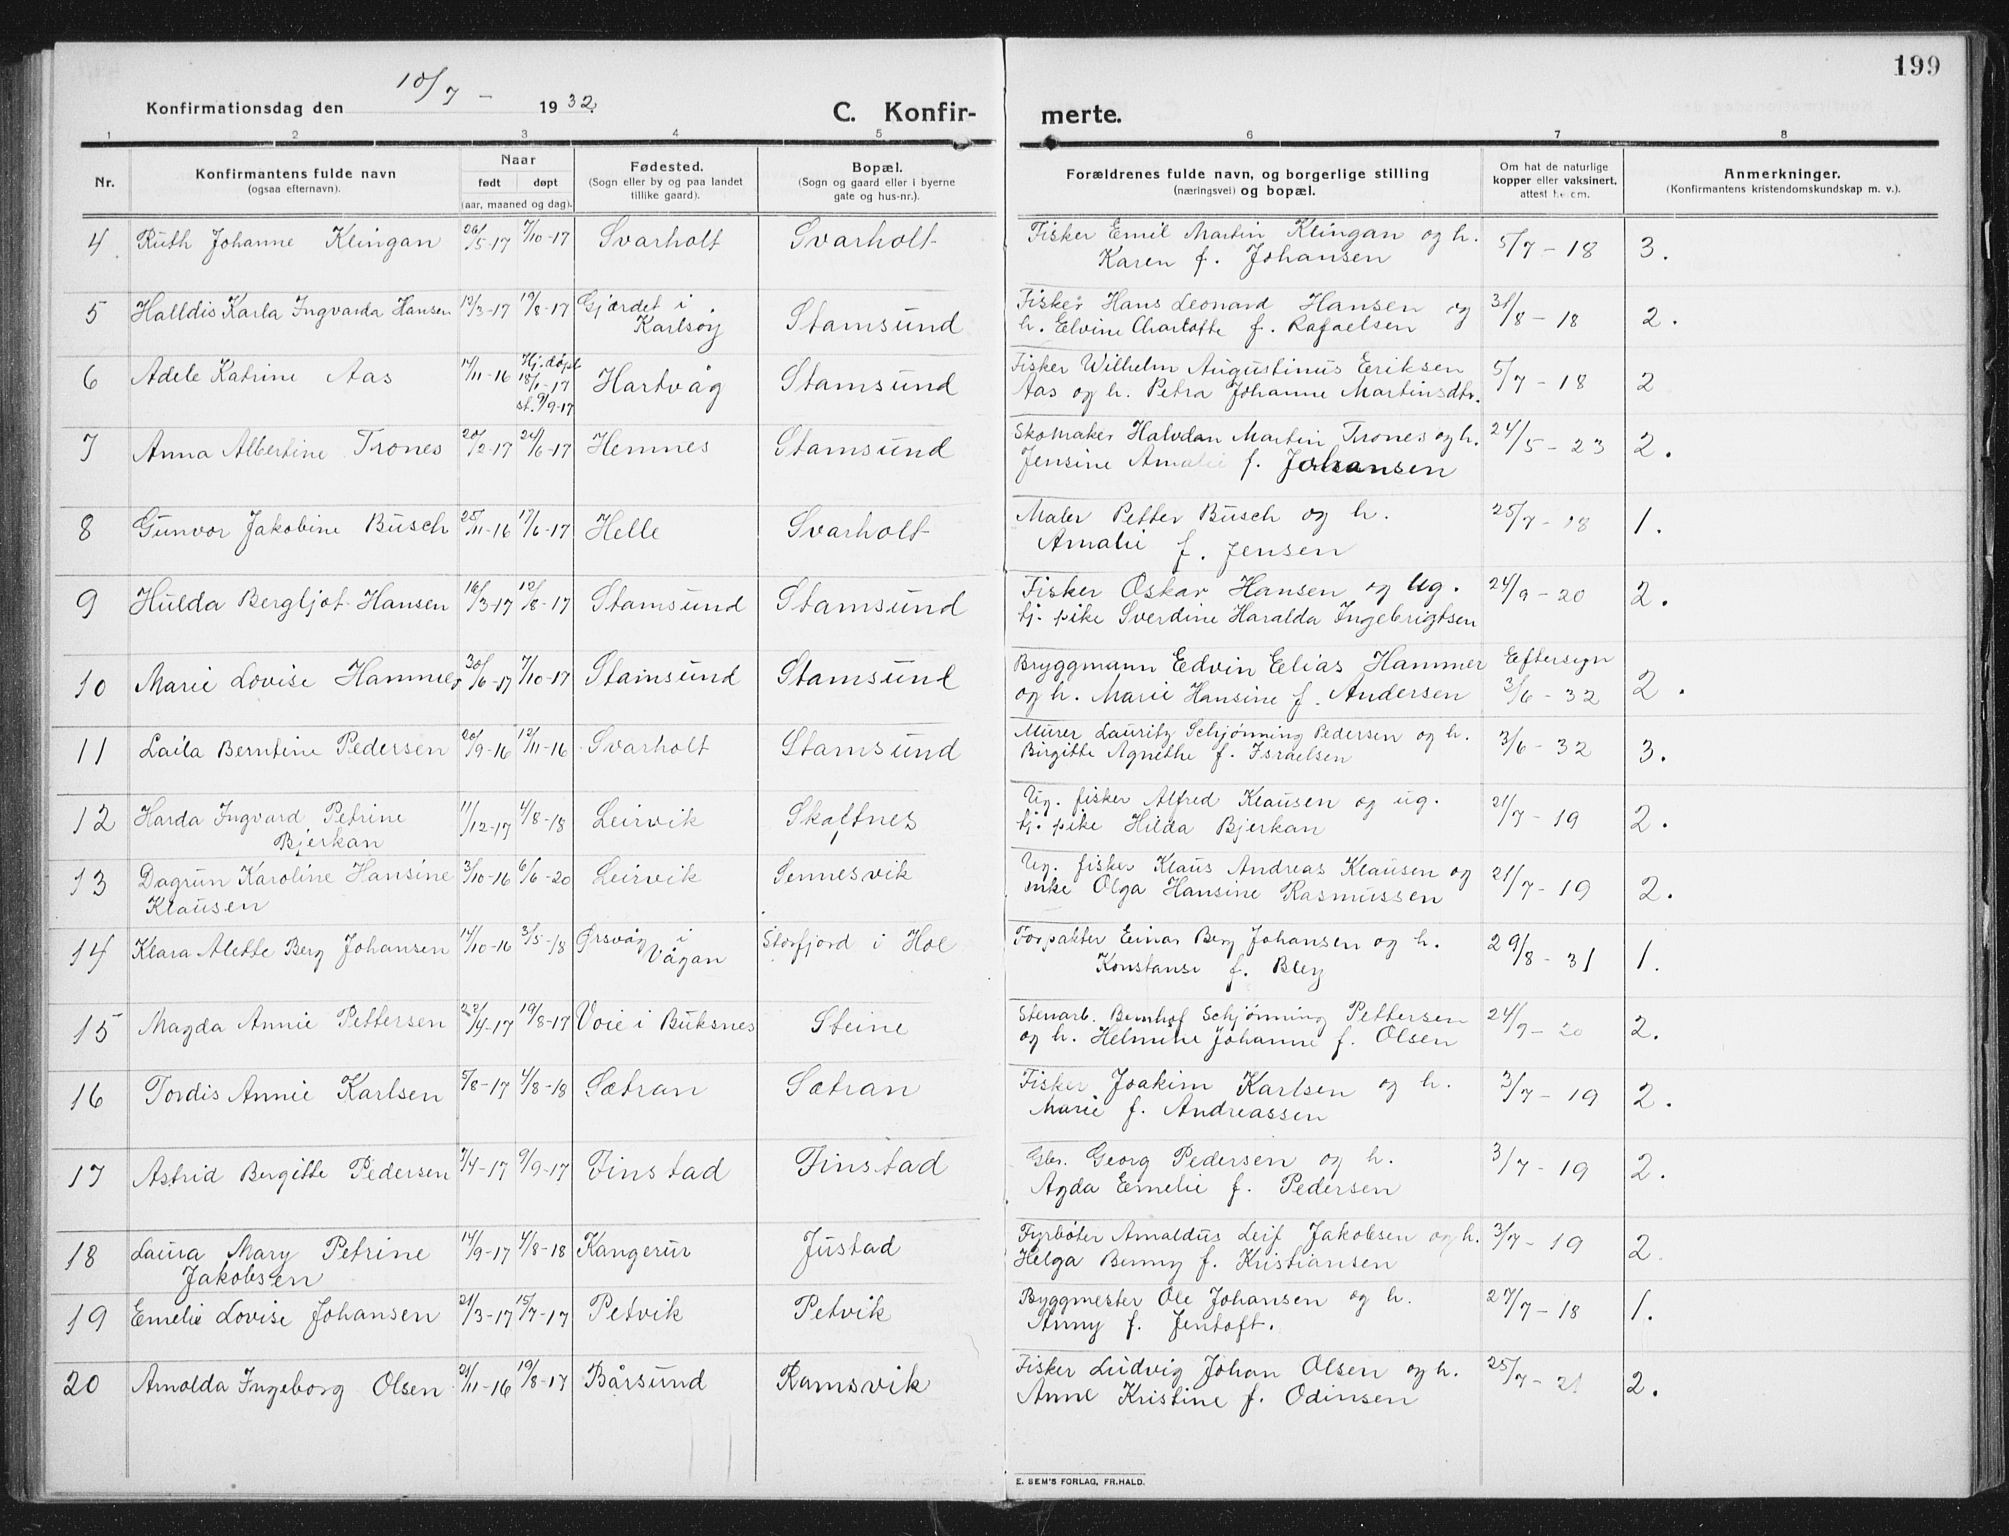 199
Konfirmationsdag den 10/7 - 1932.
C. Konfirmerte.
1 2 3 4 5 6 7 8
Nr. | Konfirmantens fulde navn (ogsaa efternavn). | Naar født døpt (aar, maaned og dag). | Fødested. (Sogn eller by og paa landet tillike gaard). | Bopæl. (Sogn og gaard eller i byerne gate og hus-nr.). | Forældrenes fulde navn, og borgerlige stilling (næringsvei) og bopæl. | Om hat de naturlige kopper eller vaksinert, attest herom. | Anmerkninger. (Konfirmantens kristendomskundskap m. v.).
4 Ruth Johanne Klingan 26/5-17 7/10-17 Svarholt Svarholt Fisker Emil Martin Klingan og h. 5/7-18 3.
Karen f. Johansen
5 Halldis Karla Ingvarda Hansen 12/3-17 19/8-17 Gjærdet i Karlsøy Stamsund Fisker Hans Leonard Hansen og 31/8-18 2.
h. Elvine Charlotte f. Rafaelsen
6 Adele Katrine Aas 14/11-16 Hj. døpt 18/1-17 st. 9/9-17 Hartvåg Stamsund Fisker Wilhelm Augustinus Eriksen 5/7-18 2
Aas og h. Petra Johanne Martinsdtr.
7 Anna Albertine Trones 20/2-17 24/6-17 Hemnes Stamsund Skomaker Halvdan Martin Trones og h. 24/5-23 2.
Jensine Amalie f. Johansen
8 Gunvor Jakobine Busch 25/11-16 17/6-17 Helle Svarholt Maler Petter Busch og h. 25/7-18 1.
Amalie f. Jensen
9 Hulda Bergljot Hansen 16/3-17 12/8-17 Stamsund Stamsund Fisker Oskar Hansen og ug. 24/9-20 2.
tj. pike Sverdine Haralda Ingebrigtsen
10 Marie Lovise Hammer 30/6-17 7/10-17 Stamsund Stamsund Bryggmann Edvin Elias Hammer Eftersyn 3/6-32 2.
og h. Marie Hansine f. Andersen
11 Laila Berntine Pedersen 20/9-16 12/11-16 Svarholt Stamsund Murer Lauritz Schjønning Pedersen og h. 3/6-32 3.
Birgitte Agnethe f. Israelsen
12 Harda Ingvard Petrine 11/12-17 4/8-18 Leirvik Skaftnes Ug. fisker Alfred Klausen og ug. 21/7-19 2.
Bjerkan tj. pike Hilda Bjerkan
13 Dagrun Karoline Hansine 3/10-16 6/6-20 Leirvik Sennesvik Ug. fisker Klaus Andreas Klausen og 21/7-19 2.
Klausen enke Olga Hansine Rasmussen
14 Klara Alette Berg Johansen 14/10-16 3/5-18 Ørsvåg i Vågan Storfjord i Hol Forpakter Einar Berg Johansen og h. 29/8-31 1.
Konstanse f. Bley
15 Magda Annie Pettersen 22/4-17 19/8-17 Voie i Buksnes Steine Stenarb. Bernhof Schjønning Pettersen 24/9-20 2.
og h. Helmine Johanne f. Olsen
16 Tordis Annie Karlsen 5/8-17 4/8-18 Sætran Sætran Fisker Joakim Karlsen og h. 3/7-19 2.
Marie f. Andreassen
17 Astrid Bergitte Pedersen 7/4-17 9/9-17 Finstad Finstad Gbr. Georg Pedersen og h. 3/7-19 2.
Agda Emelie f. Pedersen
18 Laura Mary Petrine 14/9-17 4/8-18 Kangerur Justad Fyrbøter Arnaldus Leif Jakobsen og h. 3/7-19 2.
Jakobsen Helga Benny f. Kristiansen
19 Emelie Lovise Johansen 21/3-17 15/7-17 Petvik Petvik Byggmester Ole Johansen og h. 27/7-18 1.
Anny f. Jentoft.
20 Arnolda Ingeborg Olsen 21/11-16 19/8-17 Bårsund Ramsvik Fisker Ludvig Johan Olsen og h. 25/7-21 2.
Anne Kristine f. Odinsen
E. SEM'S FORLAG, FR.HALD.